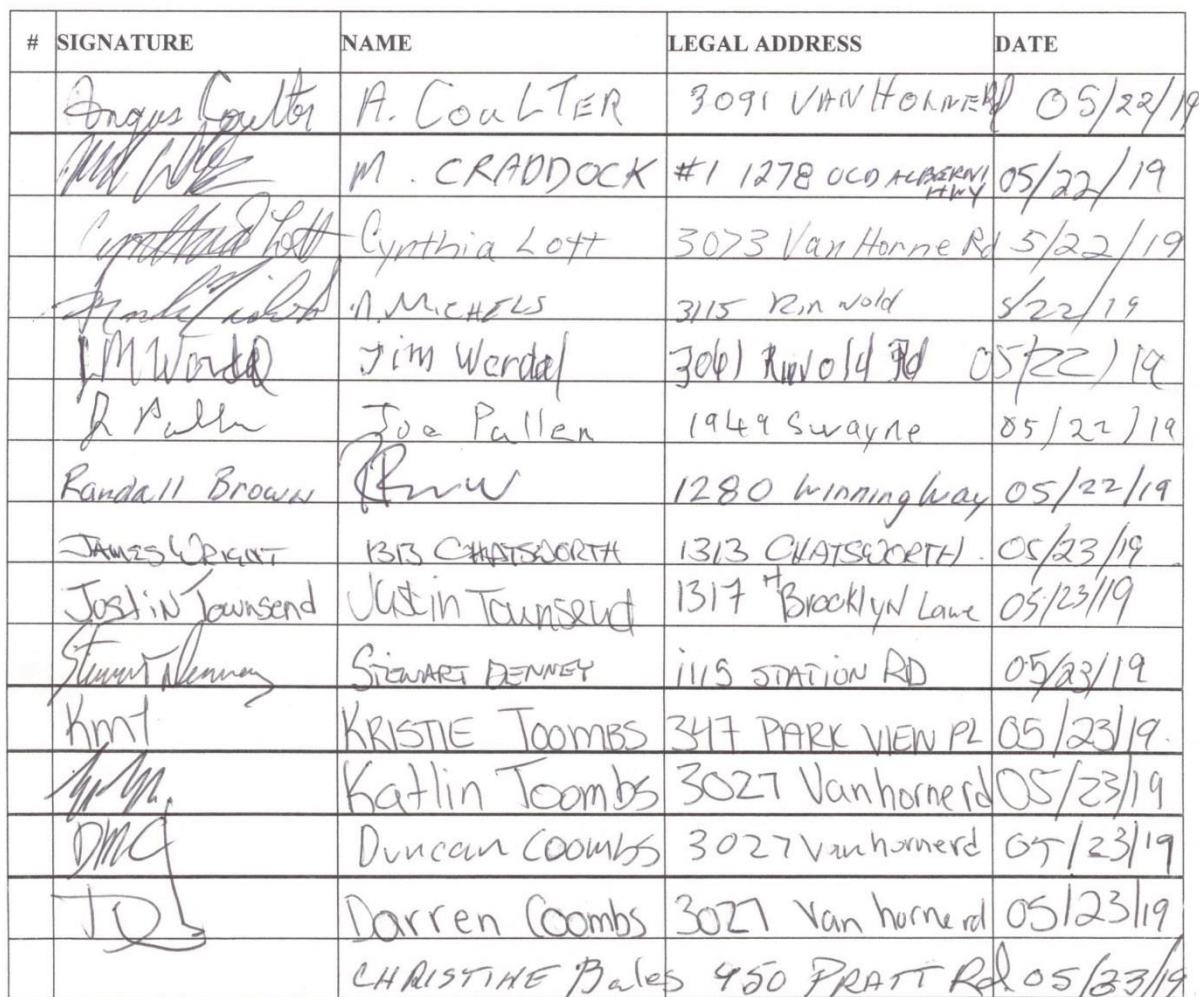 # SIGNATURE NAME LEGAL ADDRESS DATE
Angus Coulter A. COULTER 3091 VAN HORNE Rd 05/22/19
M. CRADDOCK #1 1278 OLD ALBERNI HWY 05/22/19
Cynthia Lott Cynthia Lott 3073 Van Horne Rd 5/22/19
MICHELS 3115 Rinvold 5/22/19
Jim Werdal 3061 Rinvold Rd 05/22/19
J Pallen Joe Pallen 1949 Swayne 05/22/19
Randall Brown 1280 Winning Way 05/22/19
JAMES WRIGHT 1313 CHATSWORTH 1313 CHATSWORTH. 05/23/19
Justin Townsend Justin Townsend 1317 Brooklyn Lane 05/23/19
Stewart Denney STEWART DENNEY 1115 STATION RD 05/23/19
Kmt KRISTIE TOOMBS 347 PARK VIEW PL 05/23/19.
Katlin Toombs 3027 Vanhorne rd 05/23/19
DMC Duncan Coombs 3027 Vanhorne rd 05/23/19
Darren Coombs 3027 Van horne rd 05/23/19
CHRISTINE Bales 450 PRATT Rd. 05/23/19